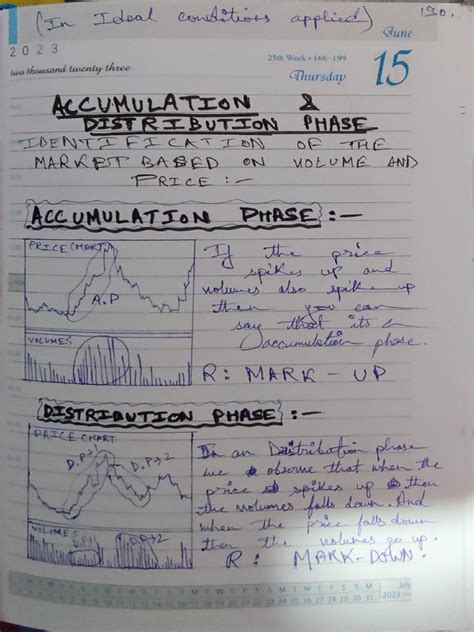 (In Ideal conditions applied)
130.
June
2023
25th Week • 166-199
15
two thousand twenty three
Thursday
ACCUMULATION &
DISTRIBUTION PHASE
IDENTIFICATION OF THE
MARKET BASED ON VOLUME AND
PRICE :-
ACCUMULATION PHASE :-
PRICE CHART
A.P
VOLUMES
If the price
spikes up and
volumes also spike up
then you can
say that its a
accumulation phase.
R: MARK-UP
DISTRIBUTION PHASE :-
PRICE CHART
D.P→1
D.P→2
VOLUME
D.P→1
D.P→2
In an Distribution phase
we observe that when the
price spikes up then
the volumes falls down. And
when the price falls down
then the volumes go up.
R: MARK-DOWN.
July
2023